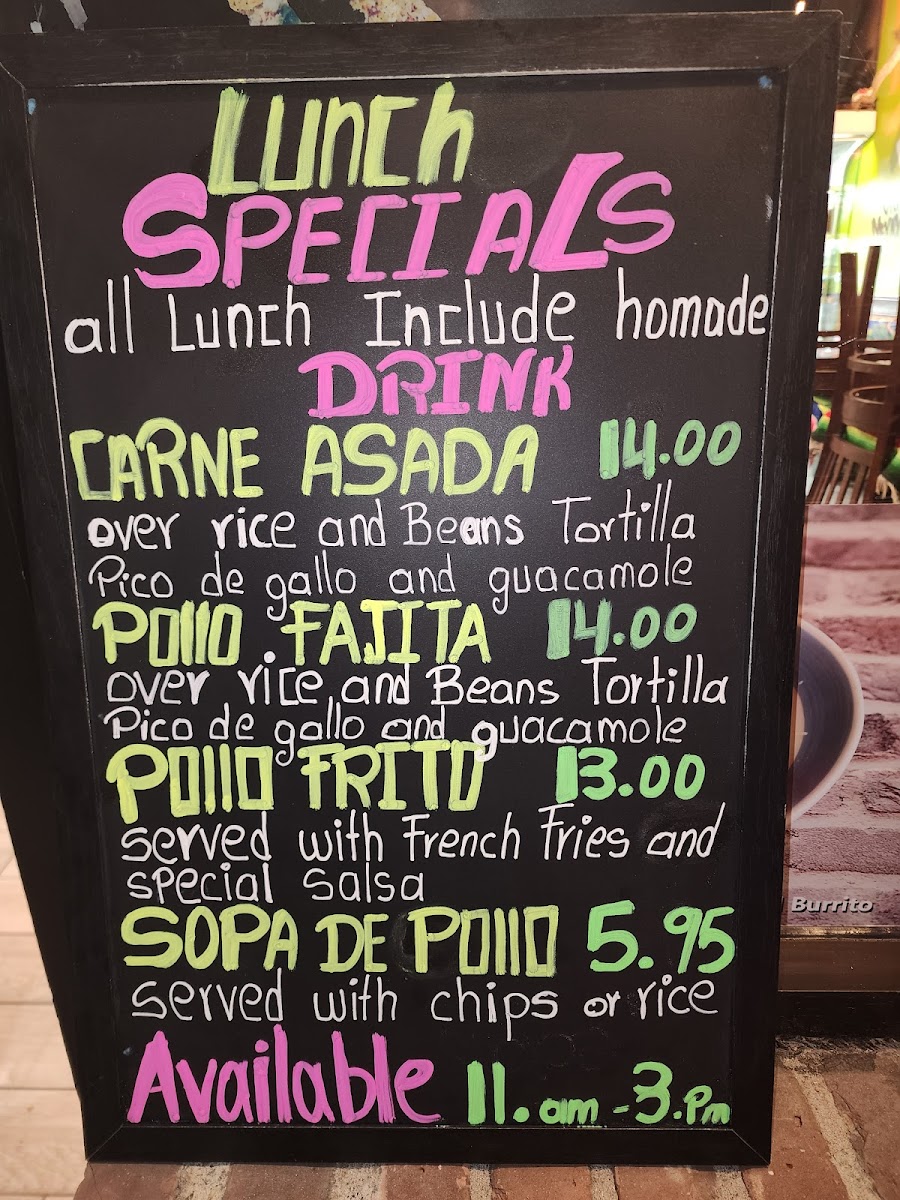 Lunch
SPECIALS
all Lunch Include homade
DRINK
CARNE ASADA 14.00
over rice and Beans Tortilla
Pico de gallo and guacamole
POllO FAJITA 14.00
over rice and Beans Tortilla
Pico de gallo and guacamole
POllO FRITO 13.00
served with French Fries and
special salsa
SOPA DE POllO 5.95
served with chips or rice
Available 11.am - 3.Pm
Burrito